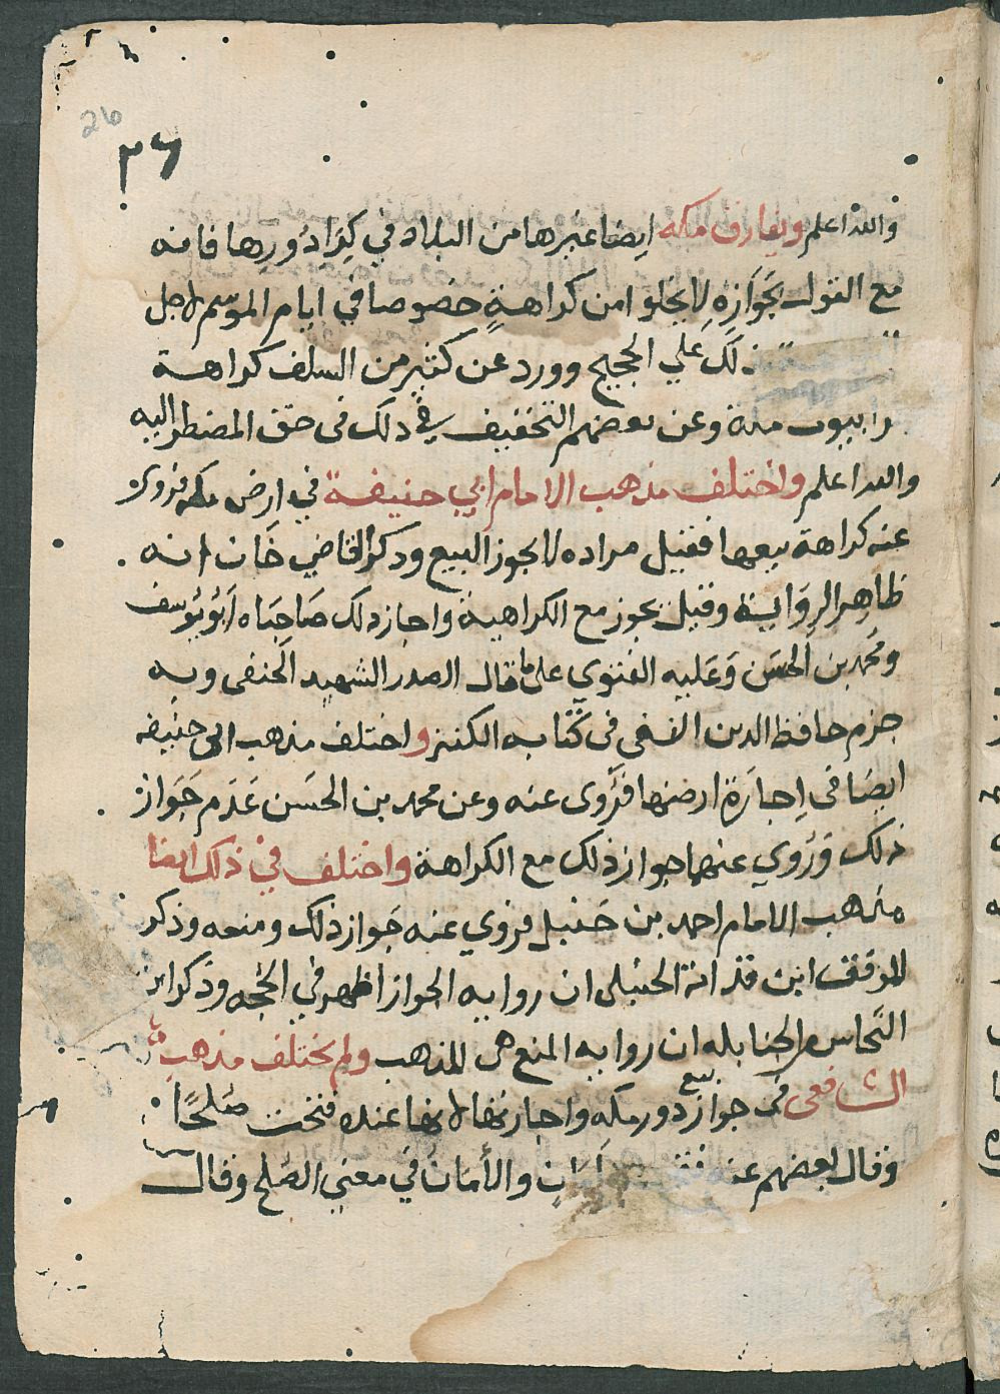 26
٢٦
والله اعلم ويفارق مكه ايضا غيرها من البلاد في كِرَا دُورِها فانه
مع القول بجَوَازِهِ لا يخلوا من كراهةٍ خصوصا في ايام الموسم لاجل
ذلك علي الحجيج وورد عن كثيرٍ من السلف كراهة
بيوت مكة وعن بعضهم التخفيف في ذلك في حق المضطر اليه
والله اعلم واختلف مذهب الامام ابي حنيفة في ارض مكه فروى
عنه كراهة بيعها فقيل مراده لا يجوز البيع وذكر القاضي خَان انه
ظاهر الرِوَاية وقيل يجوز مع الكراهية واجاز ذلك صَاحِبَاه ابَوُيُوسف
ومُحَمد بن الحسَن وَعَليه الفتوي على ما قال الصدر الشهيد الحَنفى وبه
جزم حافظ الدين النسفى فى كتابه الكنز واختلف مذهب ابى حنيفه
ايضَا فى اِجارَة ارضها فرُوى عنه وعن محمد بن الحسَن عَدَم جَوَاز
ذلك وَرُوي عنهما جواز ذلك مع الكراهة واختلف في ذلك ايضا
مذهب الامام احمد بن حَنبل فروي عنه جَواز ذلك ومنعه وذكر
الموفق ابن قدامة الحنبلى ان روايه الجواز اظهر في الحُجه وذكر ابن
النجاس الحنابله ان روايه المنع هى المذهب ولم يختلف مذهب
الشافعى فى جواز بيع دور مكه واجارتها لانها عنده فتحت صُلحًا
وقال بعضهم والأمَان في معني الصُلح وقال